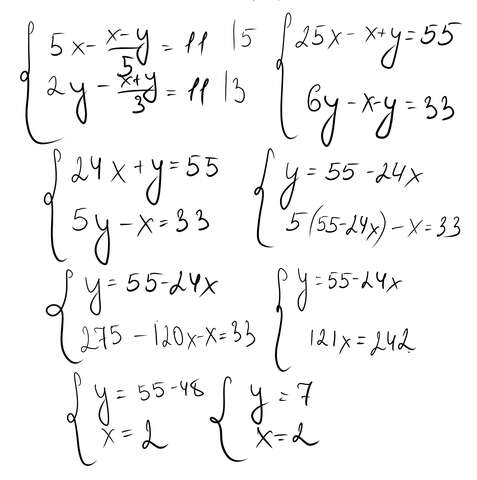 5x - (x-y)/5 = 11 |5
2y - (x+y)/3 = 11 |3
25x - x+y = 55
6y - x - y = 33
24x + y = 55
5y - x = 33
y = 55 - 24x
5(55-24x) - x = 33
y = 55 - 24x
275 - 120x - x = 33
y = 55 - 24x
121x = 242
y = 55 - 48
x = 2
y = 7
x = 2